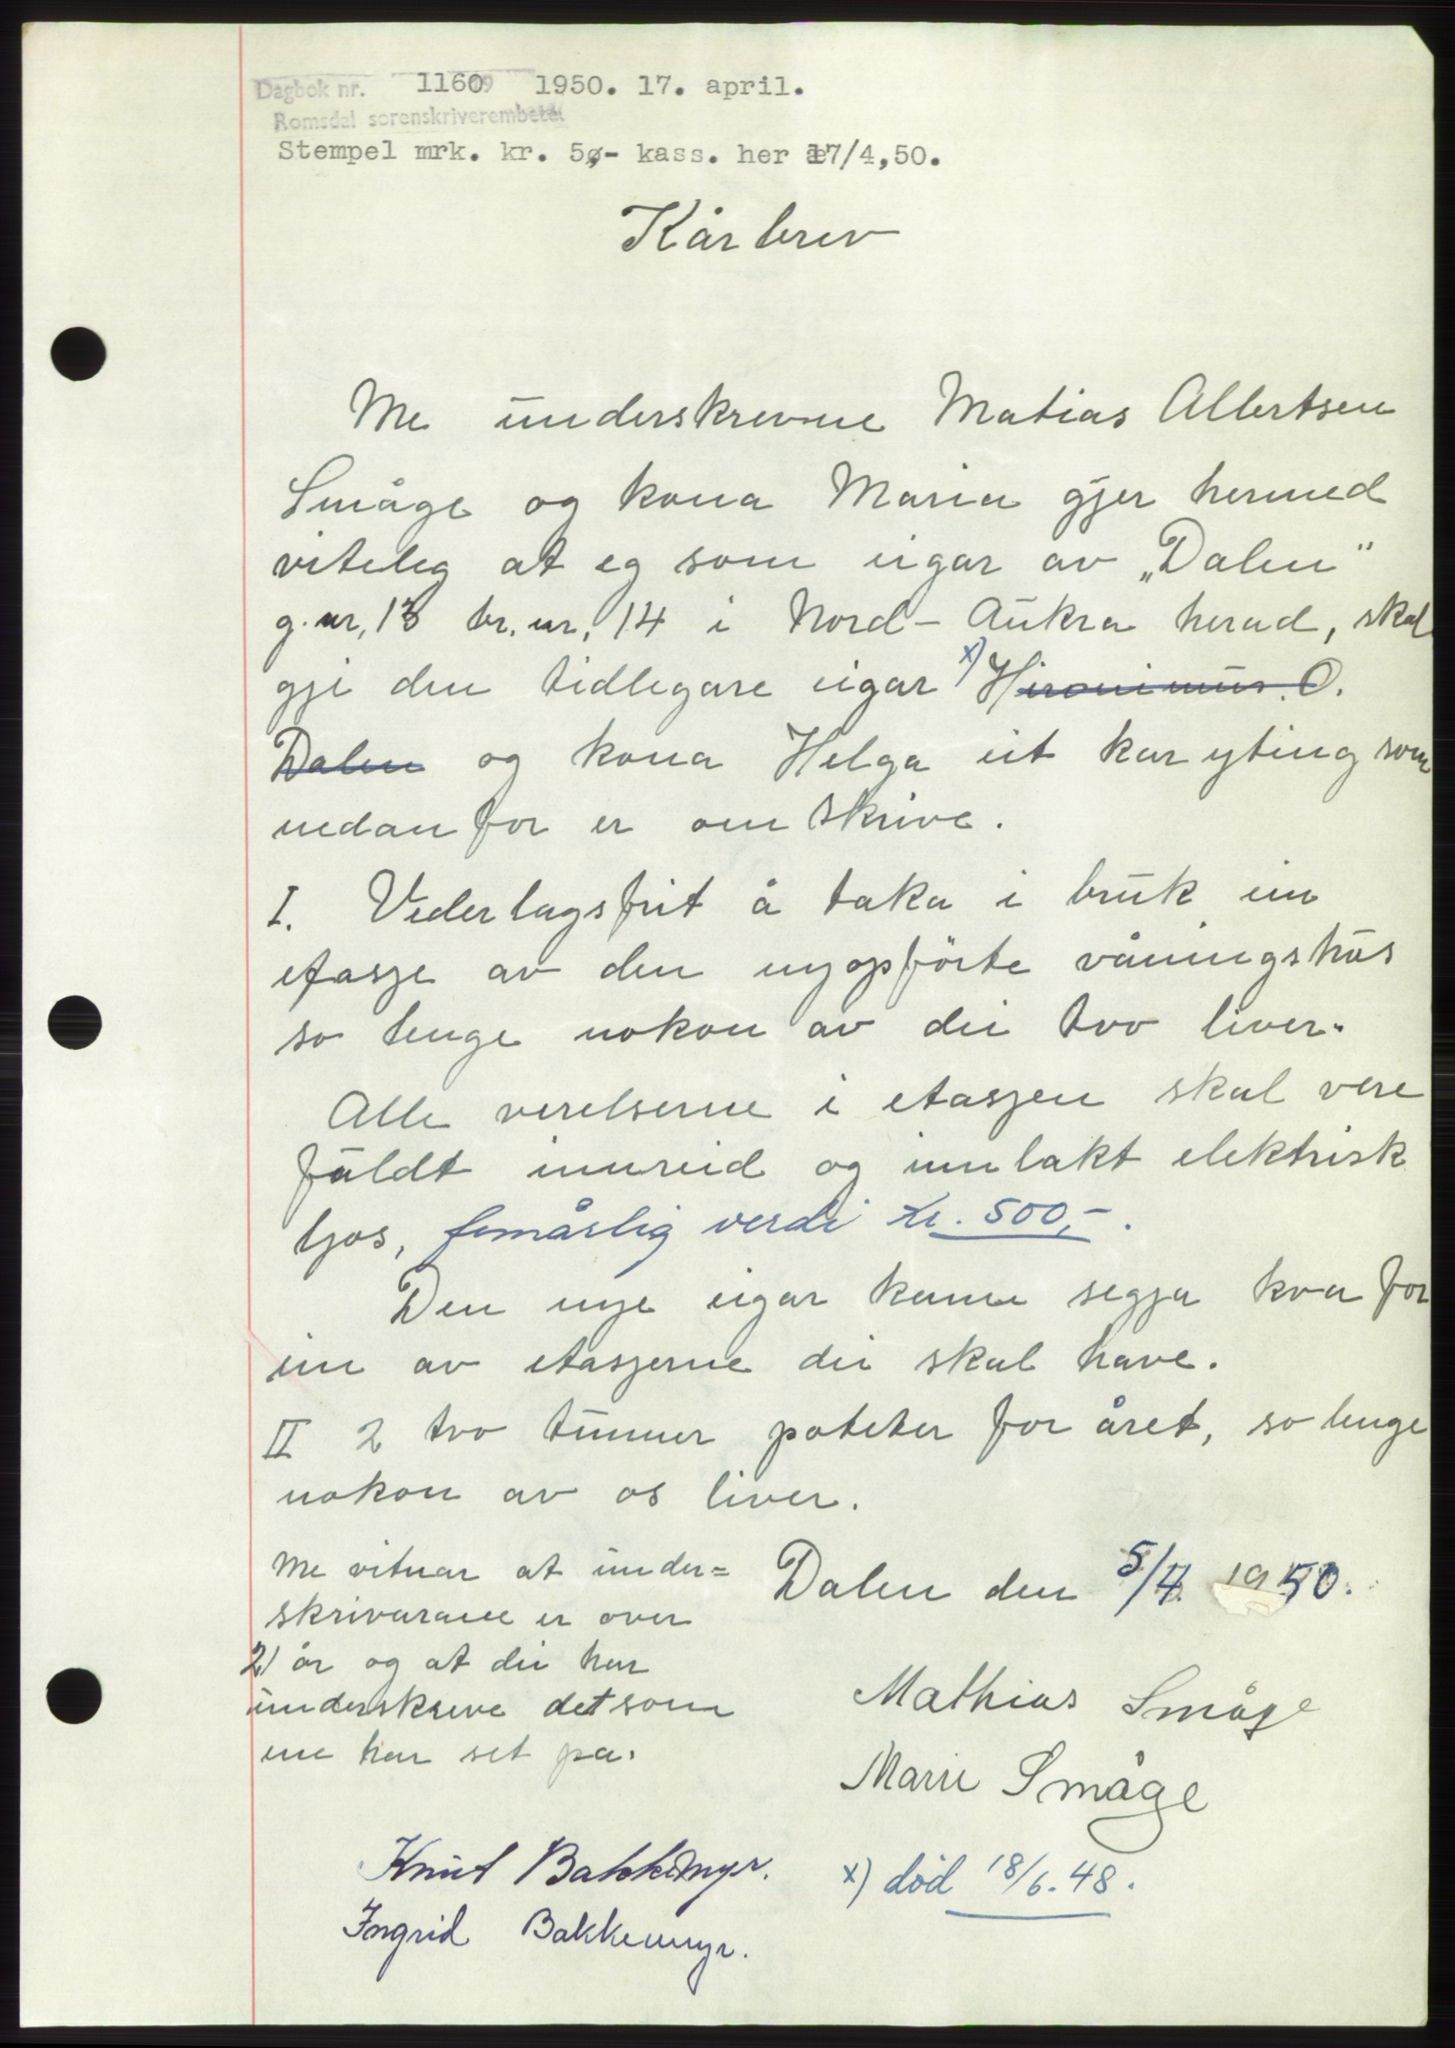 Dagbok nr. 1160 1950. 17. april.
Romsdal sorenskriverembete
Stempel mrk. kr. 5,- kass. her 17/4,50.
Kårbrev
Me underskrevne Matias Albertsen
Småge og kona Maria gjer hermed
viteleg at eg som eigar av „Dalen"
g.nr, 13 br.nr, 14 i Nord-Aukra herad, skal
gje den tidlegare eigar x) Hironimus O.
Dalen og kona Helga eit kår yting som
nedanfor er omskrive.
I. Vederlagsfrit å taka i bruk ein
etasje av den nyopförte våningshus
so lenge nokon av dei tvo liver.
Alle verelserne i etasjen skal vere
fuldt innreid og innlakt elektrisk
ljos, femårlig verdi kr. 500,-.
Den nye eigar kann segja kva for
ein av etasjerne dei skal have.
II 2 tvo tunner poteter for året, so lenge
nokon av os liver.
Me vitnar at under=
skrivarane er over
21 år og at dei har
underskreve det som
me har set på.
Dalen den 5/4. 1950.
Mathias Småge
Marie Småge
Knut Bakkemyr.
Ingrid Bakkemyr.
x) død 18/6.48.